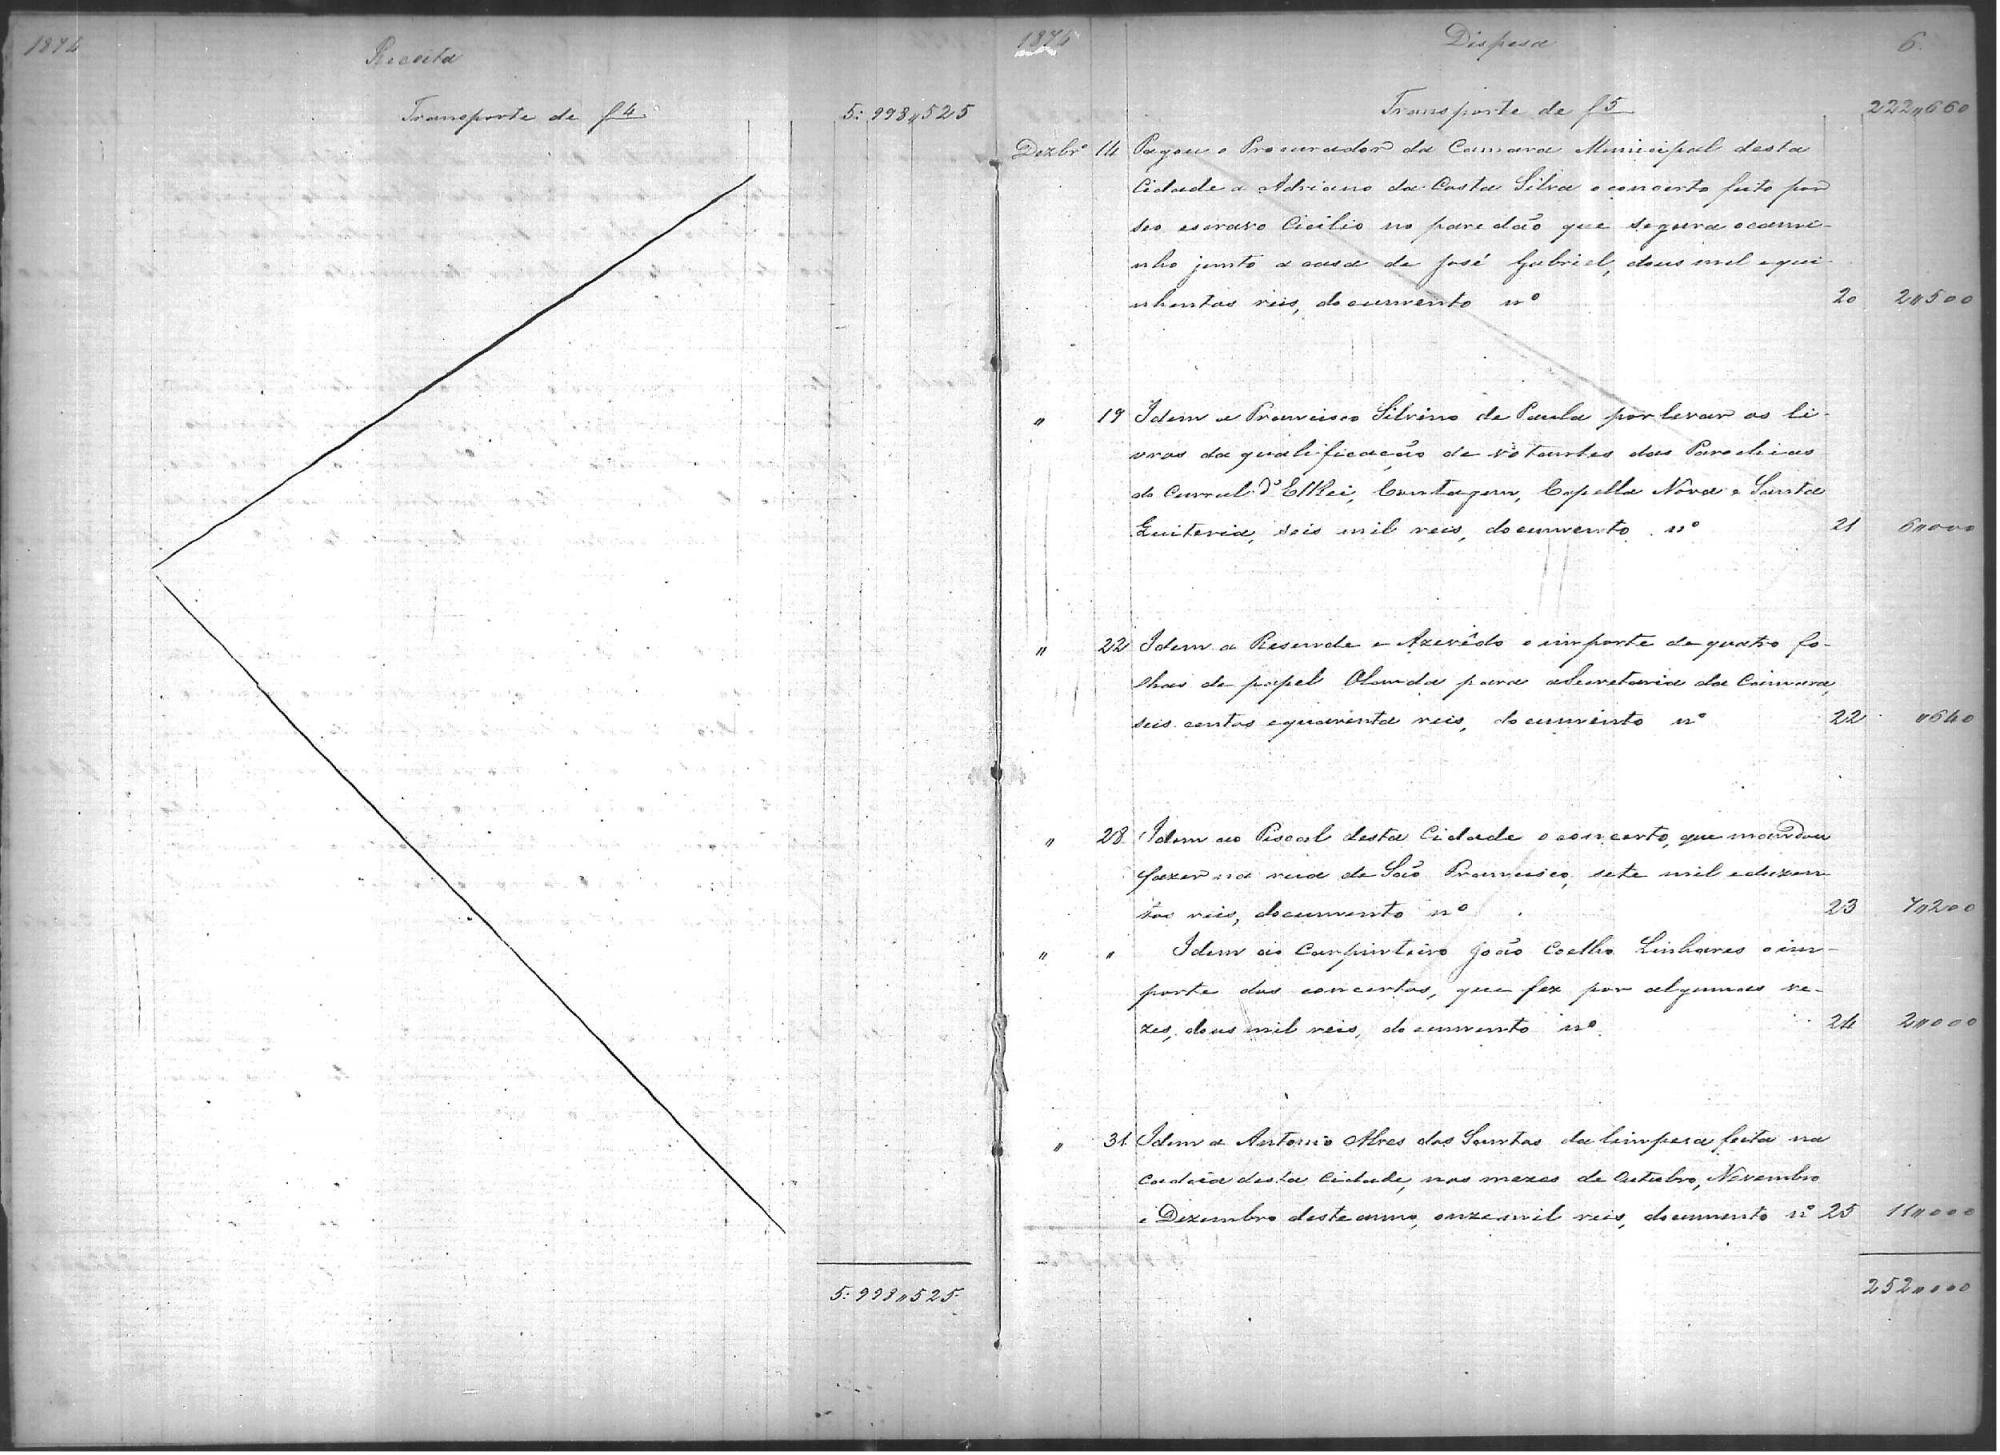 1874
Receita
Transporte de f 4 5:998,,525
5:998,,525
1874 Dispesa 6
Transporte de f 5 222,,660
Dezbrº 14 Pagou o Procurador da Camara Municipal desta
Cidade a Adriano da Costa Silva o concerto feito por
seo escravo Cicilio no paredão que segura o cami-
nho junto a casa de José Gabriel, dous mil e qui-
nhentos reis, documento nº 20 2,,500
,, 19 Idem a Francisco Silvino de Paula por levar os li-
vros da qualificação de votantes das Parochias
do Curral d'ElRei, Contagem, Capella Nova e Santa
Quiteria, seis mil reis, documento nº 21 6,,000
,, 22 Idem a Resende e Azevêdo o importe de quatro fo-
lhas de papel Olanda para a Secretaria da Camara,
seis centos e quarenta reis, documento nº 22 ,,640
,, 28 Idem ao Fiscal desta Cidade o concerto, que mandou
fazer na rua de São Francisco, sete mil e duzen
tos reis, documento nº 23 7,,200
,, ,, Idem ao Carpinteiro João Coelho Linhares o im-
porte dos concertos, que fez por algumas ve-
zes, dous mil reis, documento nº 24 2,,000
,, 31 Idem a Antonio Alves dos Santos da limpesa feita na
Cadeia desta Cidade, nos mezes de Outubro, Novembro
e Dezembro deste anno, onze mil reis, documento nº 25 11,,000
252,,000